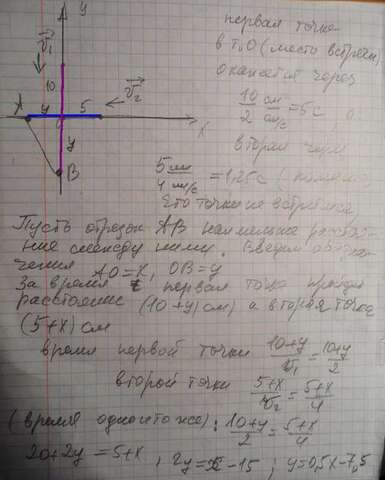 y
v₁
10
A
y
5
v₂
x
y
B
первая точка
в т.О (место встречи)
окажется через
10 см / 2 см/с = 5 с, а
вторая через
5 / 4 = 1,25 с
точки не встретятся
Пусть отрезок АВ наименьшее расстоя-
ние между ними. Введем обозна-
чения АО=х, ОВ=у
За время t первая точка пройдет
расстояние (10+у) см, а вторая точка
(5+х) см
время первой точки (10+у)/v₁ = (10+у)/2
второй точки (5+х)/v₂ = (5+х)/4
(время одно и то же): (10+у)/2 = (5+х)/4
20+2у = 5+х, 2у = х-15; у=0,5х-7,5